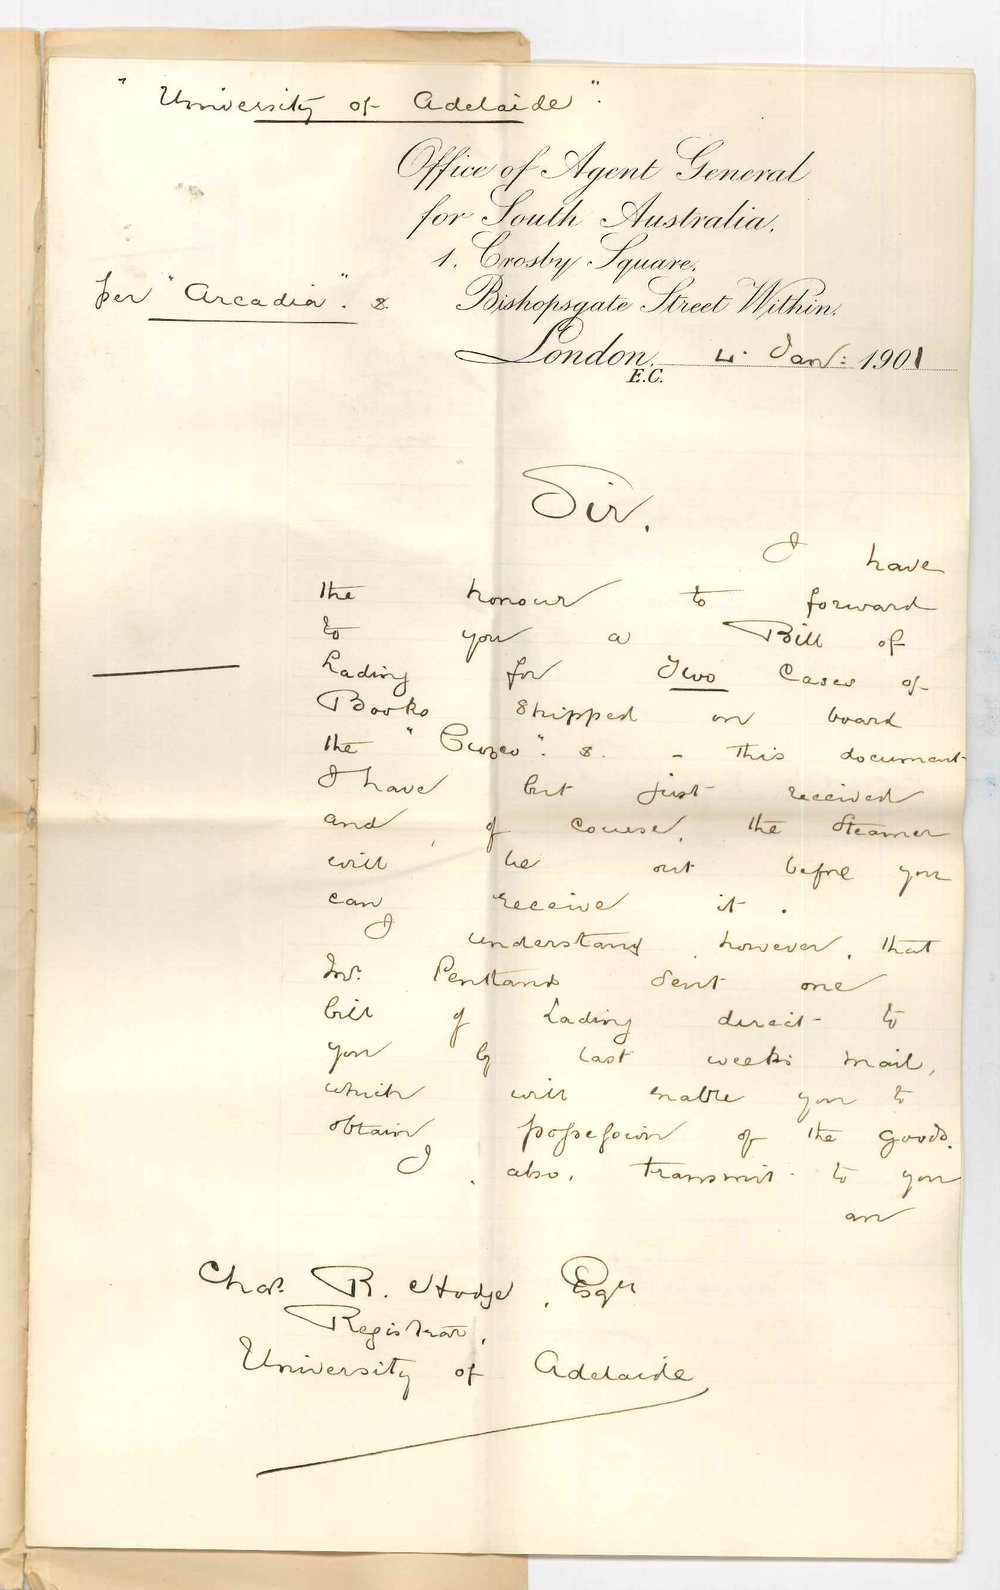 "University of Adelaide".
Office of Agent General
for South Australia,
1. Crosby Square,
per "Arcadia". s.
Bishopsgate Street Within,
London, 4. Jan: 1901
E.C.
Sir,
I have
the honour to forward
to you a Bill of
Lading for Two Cases of
Books shipped on board
the "Cuzco". s. - this document
I have but just received
and, of course, the Steamer
will be out before you
can receive it.
I understand, however, that
Mr. Pentland sent one
bill of Lading direct to
you by last week's mail,
which will enable you to
obtain possession of the goods.
I, also, transmit to you
an
Chas. R. Hodge, Esqr
Registrar,
University of Adelaide